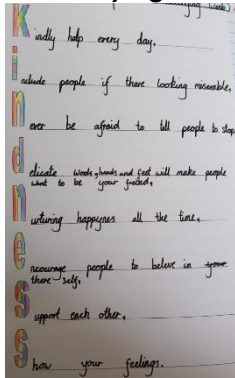 Kindly help every day.
include people if there looking miserable,
never be afraid to tell people to stop
delicate words, hands and feet will make people
want to be your friend,
nurturing happynes all the time,
encourage people to beleve in
there self,
Support each other,
Show your feelings.